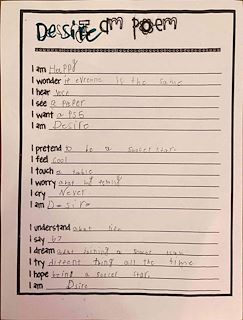 Desire I am poem
I am HaPPY
I wonder if evreone is the same
I hear voce
I see a Paper
I want a PS5
I am Desire
I pretend to be a soccer star
I feel cool
I touch a table
I worry abot my family
I cry Never
I am Desire
I understand abot
I say
I dream abot being a soccer star
I try different thing all the time
I hope being a soccer star
I am Dsire